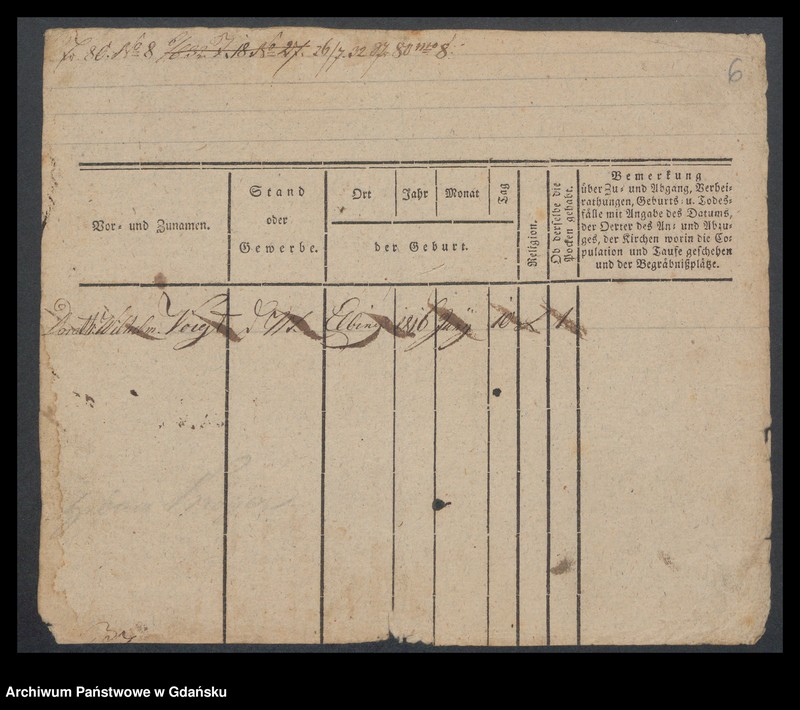 6
Vor- und Zunamen.
Stand
oder
Gewerbe.
Ort
Jahr
Monat
Tag
der Geburt.
Religion.
Ob derselbe die
Pocken gehabt.
Bemerkung
über Zu- und Abgang, Verhei-
rathungen, Geburts- u. Todes-
fälle mit Angabe des Datums,
der Oerter des An- und Abzu-
ges, der Kirchen worin die Co-
pulation und Taufe geschehen
und der Begräbnißplätze.
Doroth. Wilhelm. Voigt
Elbing
1816
10
1
Archiwum Państwowe w Gdańsku